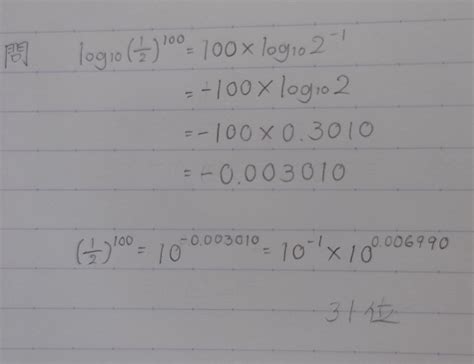 問 log₁₀(1/2)¹⁰⁰ = 100 × log₁₀2⁻¹
= -100 × log₁₀2
= -100 × 0.3010
= -0.003010
(1/2)¹⁰⁰ = 10^-0.003010 = 10⁻¹ × 10^0.006990
31位